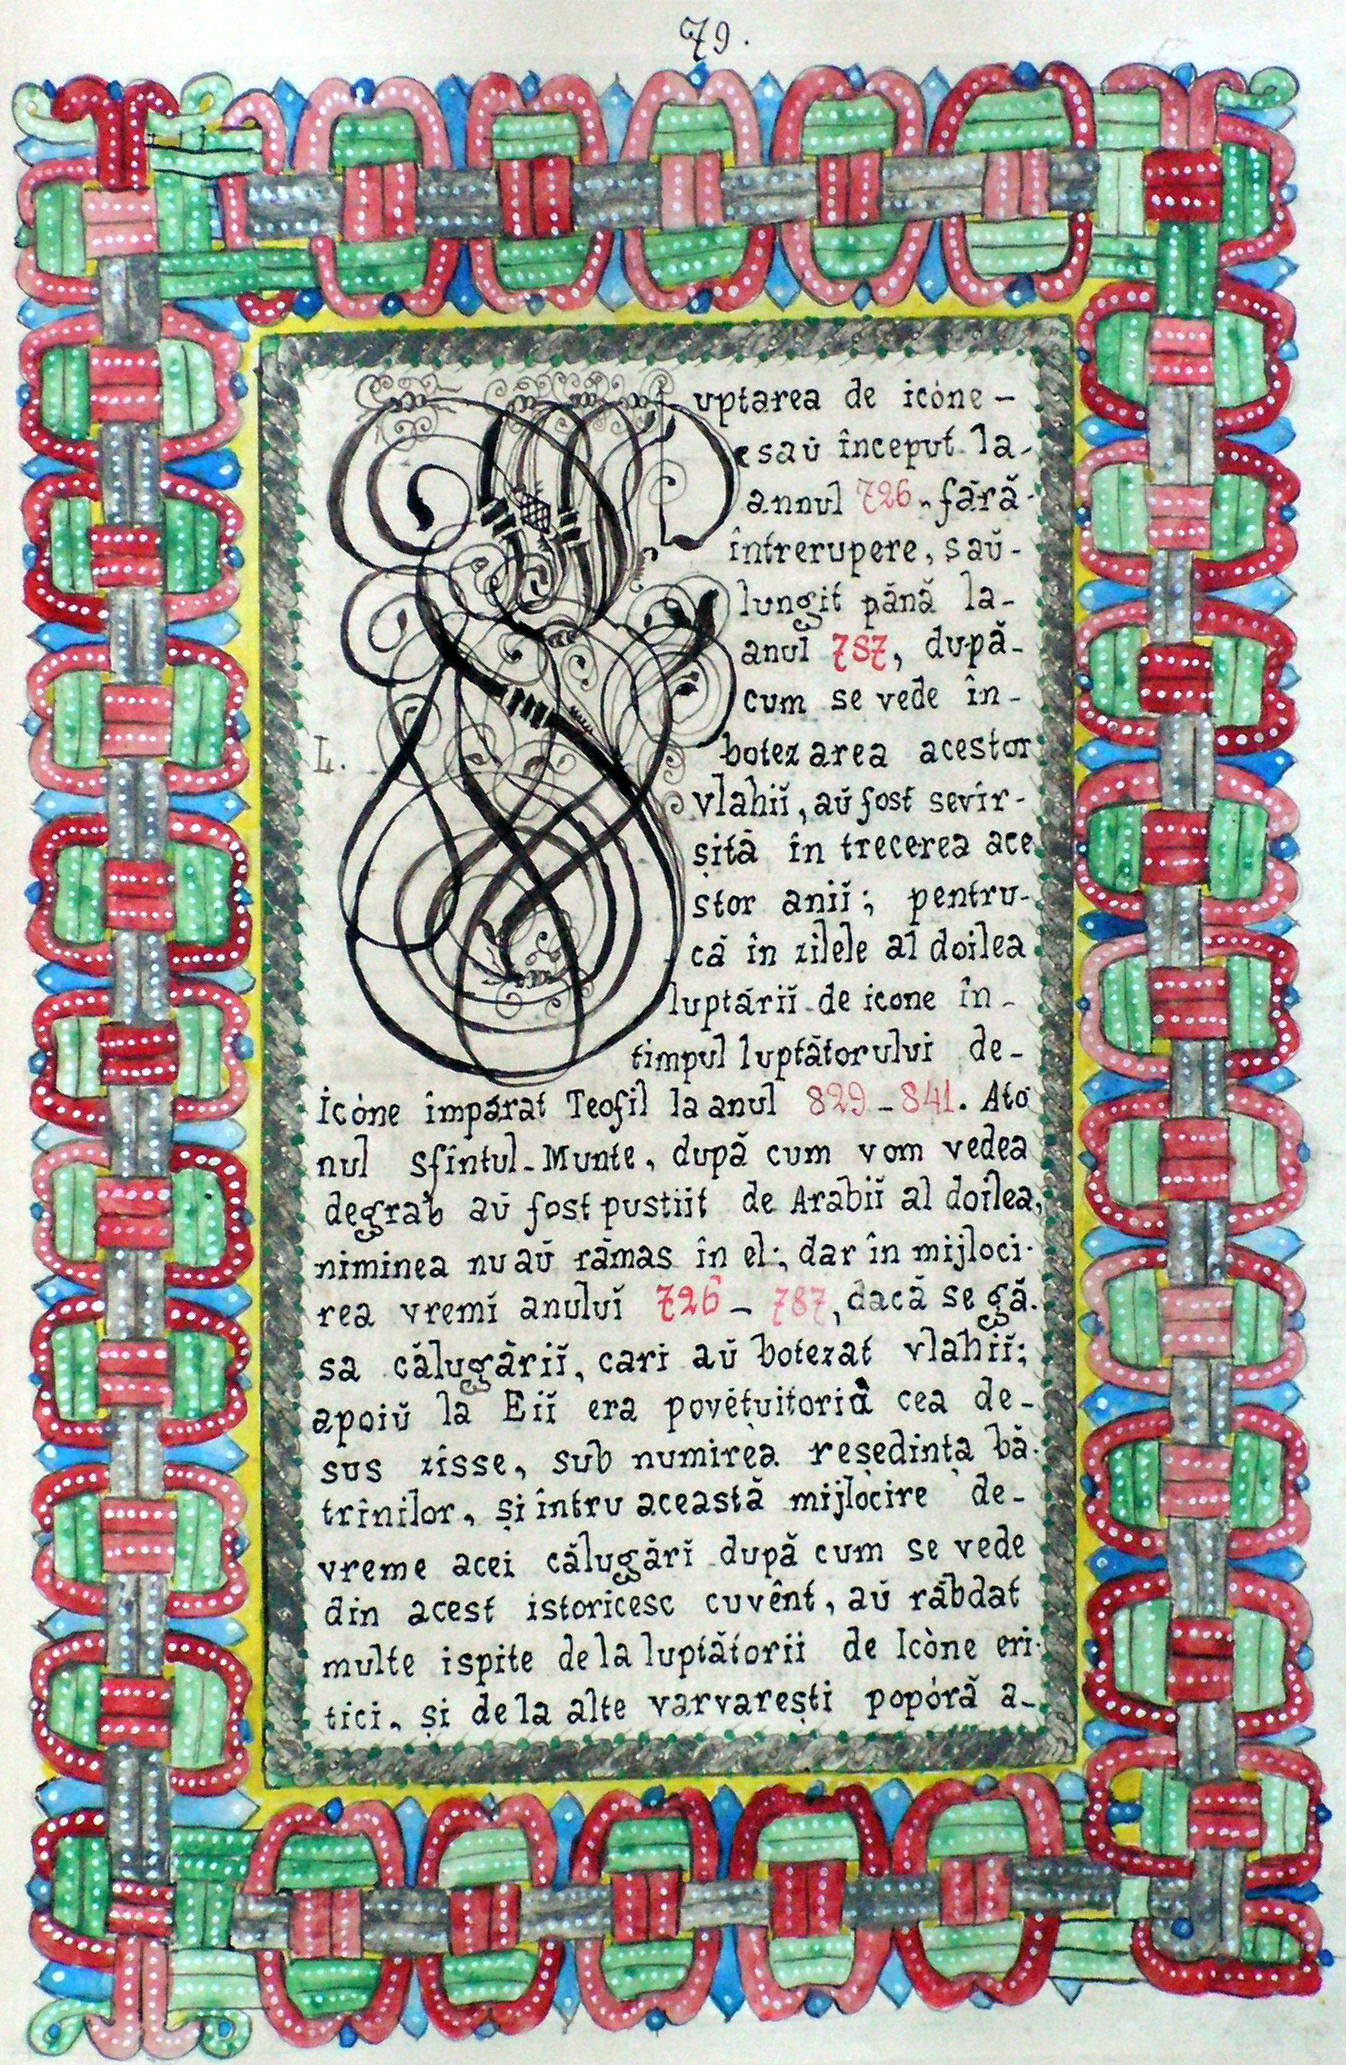 79.
uptarea de icòne –
saŭ început la-
annul 726 - fără-
întrerupere, saŭ-
lungit până la-
anul 787, după-
cum se vede în-
L.
botezarea acestor
vlahiĭ, aŭ fost sevîr-
șită în trecerea ace
stor aniĭ; pentru-
că în zilele al doilea
luptăriĭ de icone în-
timpul luptătorului de-
Icòne împărat Teofil la anul 829-841. Ato
nul sfîntul-Munte, după cum vom vedea
degrab aŭ fost pustiit de Arabiĭ al doilea,
niminea nu aŭ rămas în el; dar în mijloci-
rea vremĭ anuluĭ 726 - 787, dacă se gă-
sa călugăriĭ, cari aŭ botezat vlahiĭ;
apoiŭ la Eiĭ era povețuitoria cea de-
sus zisse, sub numirea reședința bă-
trînilor, și întru această mijlocire de-
vreme acei călugărĭ după cum se vede
din acest istoricesc cuvênt, aŭ răbdat
multe ispite de la luptătorii de Icòne eri-
tici, și de la alte varvarești popóră a-